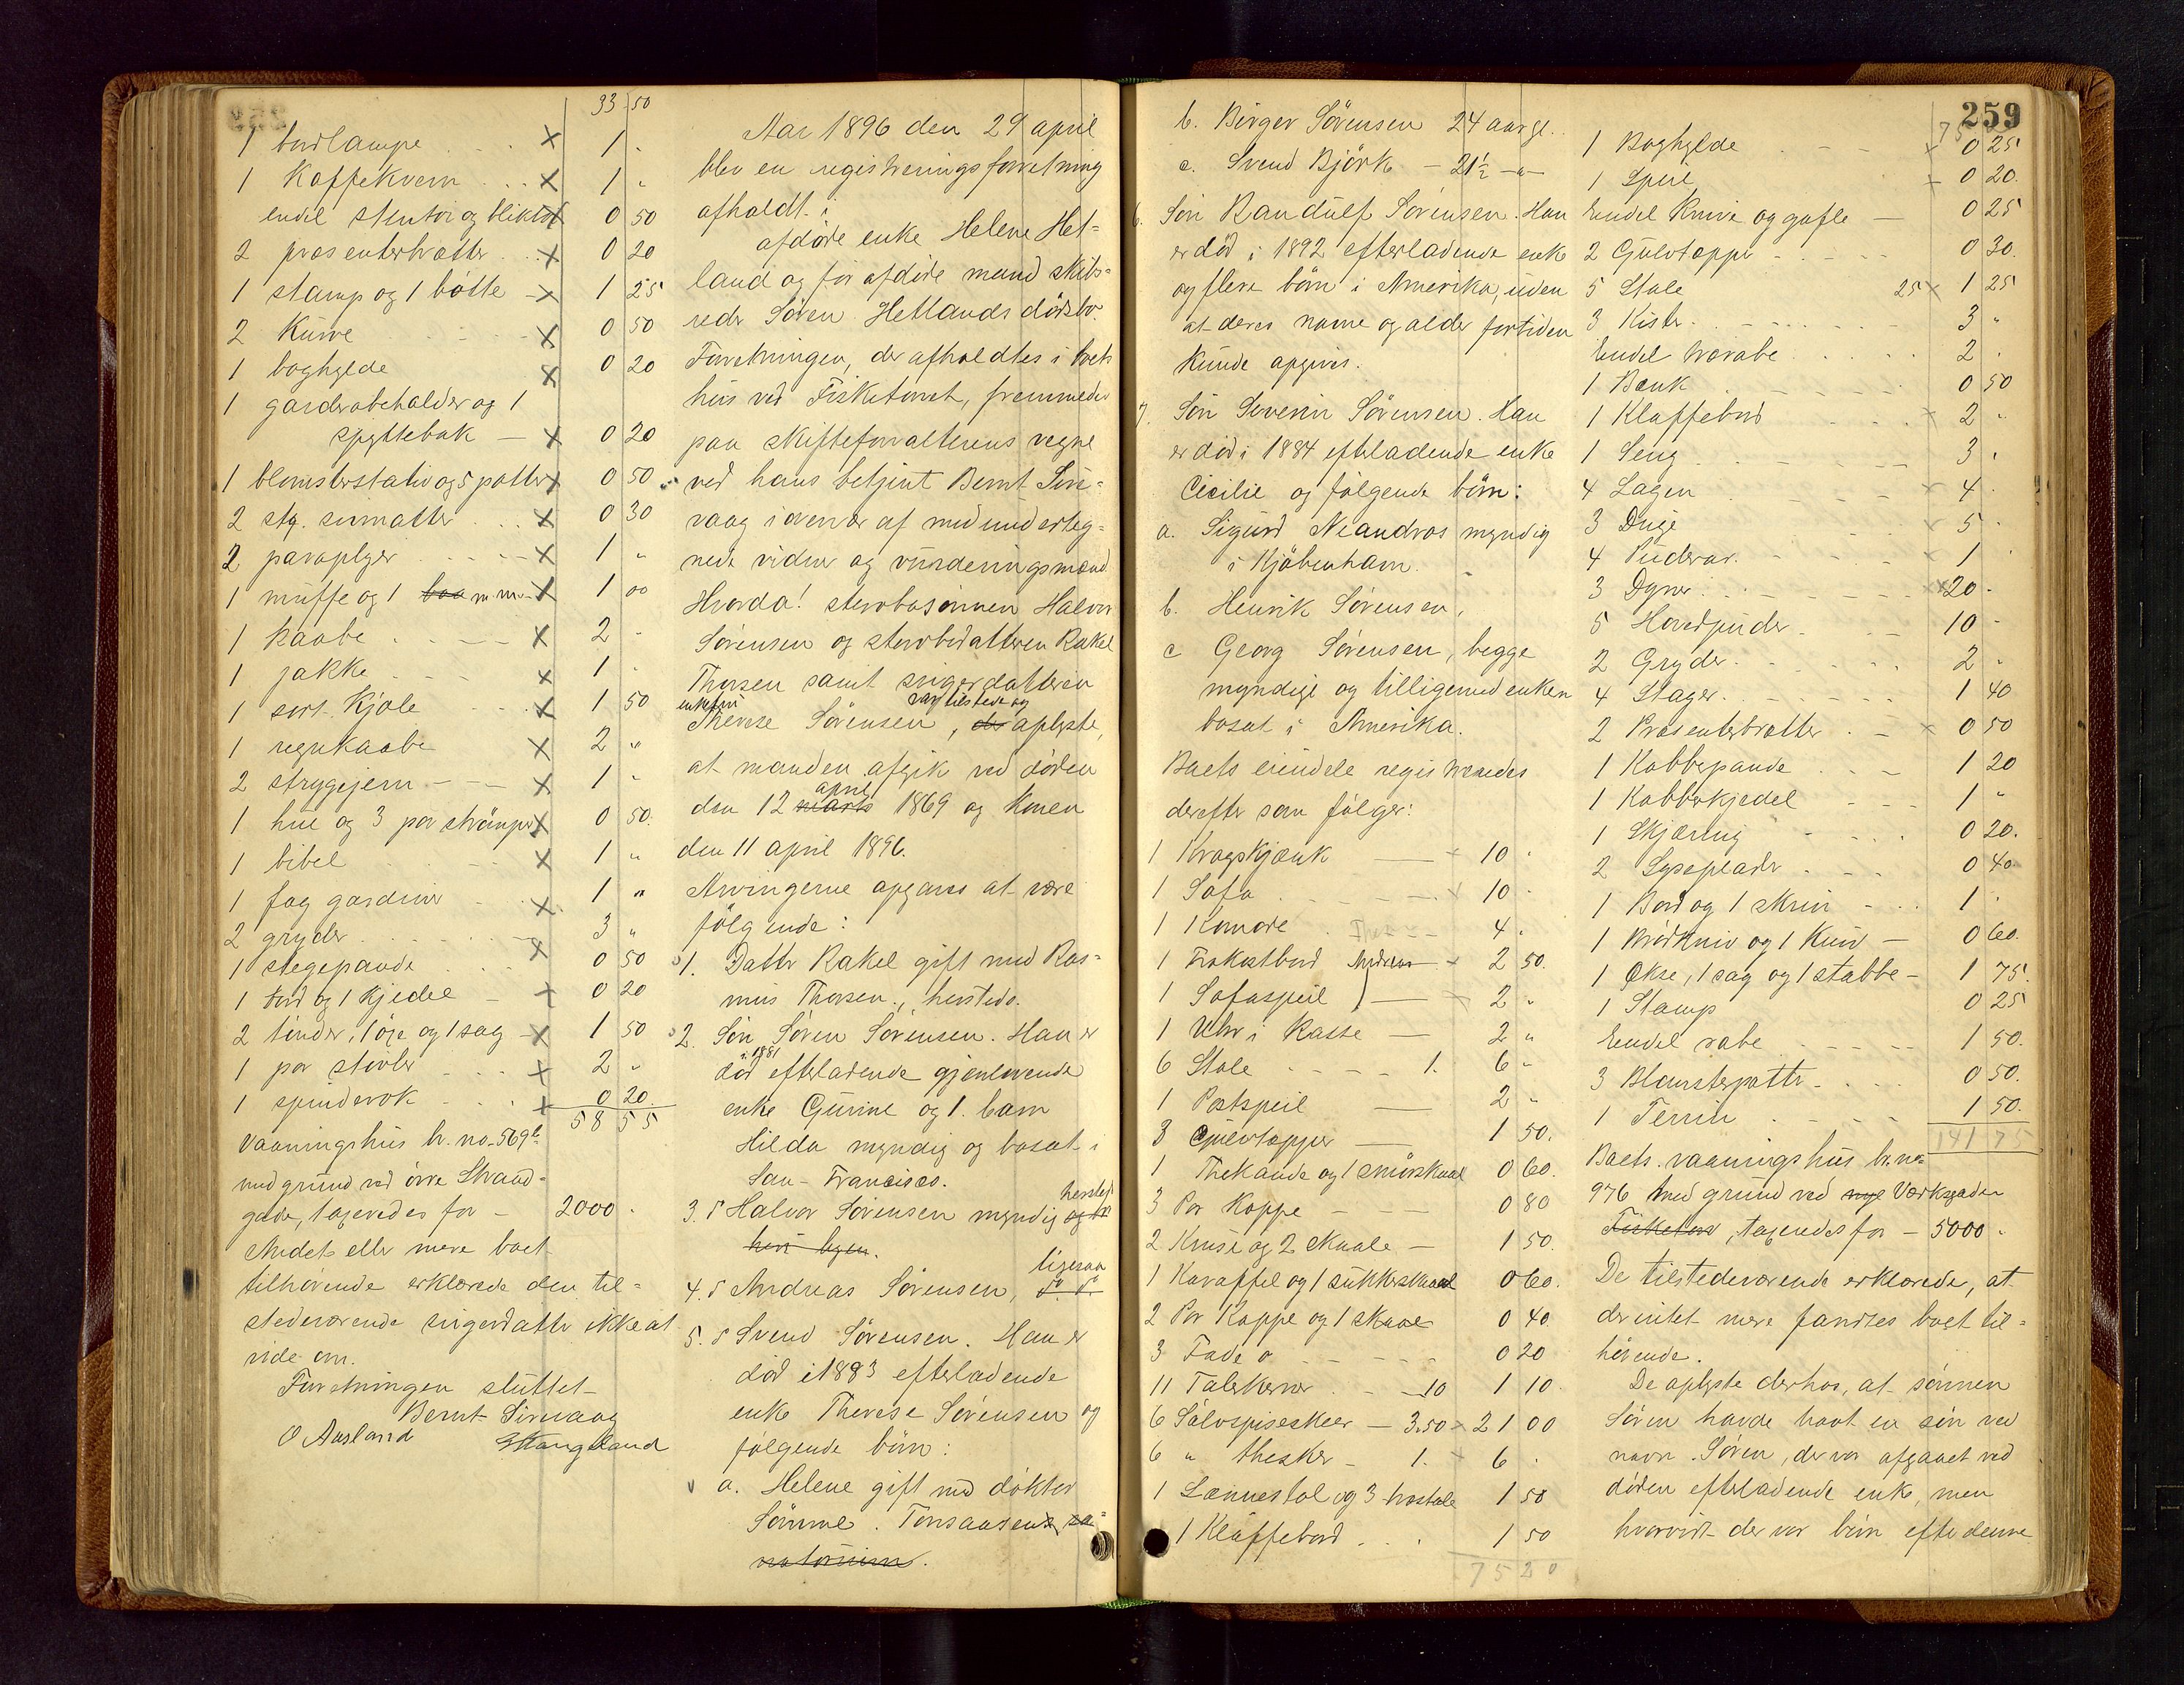 33 50
1 bordlampe . . . X 1 "
1 Kaffekvern . . . X 1 "
endel stentøi og bliktøi X 0 50
2 præsenterbrætter . . X 0 20
1 stamp og 1 bötte - X 1 25
2 Kurve X 0 50
1 boghylde X 0 20
1 garderobeholder og 1
spyttebak — X 0 20
1 blomsterstativ og 5 potter X 0 50
2 stg. sivmatter . . . X 0 30
2 paraplyer X 1 "
1 muffe og 1 boa m.m. X 1 00
1 Kaabe X 2 "
1 jakke X 1 "
1 sort Kjole X 1 50
1 regnkaabe X 2 "
2 strygejern X 1 "
1 hue og 3 par strömper X 0 50
1 bibel X 1 "
1 fag gardiner X 1 "
2 gryder 3 "
1 stegepande X 0 50
1 bord og 1 Kjedel X 0 20
2 tönder, 1 öxe og 1 sag X 1 50
1 par støvler X 2 "
1 spinderok X 0 20
58 55
Vaaningshus br. no. 569 b
med grund ved övre Strand-
gade, taxeredes for - 2000 "
Andet eller mere boet
tilhørende erklærede den til-
stedeværende svigerdatter ikke at
vide om.
Forretningen sluttet
Bernt Sirevaag
O Aasland

Aar 1896 den 29 april
blev en registreringsforretning
afholdt i
afdøde enke Helene Het-
land og før afdøde mand skibs-
reder Søren Hetlands dødsbo.
Forretningen, der afholdtes i boets
hus ved Fisketorvet, fremmedes
paa skifteforvalterens vegne
ved hans betjent Bernt Sire-
vaag i overvær af medunderteg-
nede vidner og vurderingsmænd.
Hvorda! stervbosönnen Halvor
Sørensen og stervbodatteren Rakel
Thorsen samt svigerdatteren
enkefru var tilstede og
Therese Sørensen, der oplyste,
at manden afgik ved døden
april
den 12 marts 1869 og Konen
den 11 april 1896.
Arvingerne opgaves at være
følgende:
1. Datter Rakel gift med Ras-
mus Thorsen, hersteds.
2. Søn Søren Sørensen. Han er
i 1881
død efterladende gjenlevende
enke Gurine og 1 barn
Hilda myndig og bosat i
San-Francisco.
hersteds
3. S Halvor Sørensen myndig og
heri byen.
ligesaa
4. S Andreas Sørensen, d. d.
5. S Svend Sørensen. Han er
död i 1893 efterladende
enke Therese Sørensen og
følgende börn:
a. Helene gift med doktor
Sömme. Tonsaasens sa-
natorium.

259
b. Birger Sørensen 24 aar gl.
c. Svend Björk - 21½ -"-
6. Søn Randulf Sørensen. Han
er död i 1892 efterladende enke
og flere börn i Amerika, uden
at deres navne og alder fortiden
Kunde opgives.
7. Søn Severin Sørensen. Han
er död i 1884 efterladende enke
Cecilie og følgende börn:
a. Sigurd Neandros myndig
i Kjöbenham.
b. Henrik Sørensen,
c Georg Sørensen, begge
myndige og tilligemed enken
bosat i Amerika.
Boets eiendele registreredes
derefter som følger:
1 Kragskjænk — 10 "
1 Sofa 10 "
1 Komode 4 "
1 Frokostbord Andreas 2 50
1 Sofaspeil — 2 "
1 Uhr i Kasse — 2 "
6 Stole 1. 6 "
1 Postspeil — 2 "
3 Gulvtæpper — 1 50
1 Thekande og 1 smörskaal 0 60
3 Par Koppe 0 80
2 Kruse og 2 skaale — 1 50
1 Karaffel og 1 sukkerskaal 0 60
2 Par Koppe og 1 skaal 0 40
3 Fade 0 20
11 Talerkener 10 1 10
6 Sölvspiseskeer - 3.50 21 00
6 " theskeer - 1. 6 "
1 Lænnestol og 3 træstole 1 50
1 Klaffebord 1 50
75 20

75
1 Boghylde 0 25
1 Speil 0 20
Endel Knive og gafle — 0 25
2 Gulvtæpper 0 30
5 Stole 25 1 25
3 Kister 3 "
Endel 2 "
1 Bænk 0 50
1 Klaffebord 2 "
1 Seng 3 "
4 Lagen 4 "
3 Duge 5 "
4 Pudevar 1 "
3 Dyner 20 "
5 Hovedpuder 10 "
2 Gryder 2 "
4 Stager 1 40
2 Præsenterbrætter 0 50
1 Kobberpande 1 20
1 Kobberkjedel 1 "
1 Skjæring 0 20
2 Lyseplader 0 40
1 Bord og 1 skrin 1 "
1 Brödkniv og 1 Kurv — 0 60
1 Økse, 1 sag og 1 stabbe - 1 75
1 Stamp 0 25
Endel 1 50
3 Blomsterpotter 0 50
1 Terrin 1 50
141 75
Boets vaaningshus br. no
976 med grund ved nye Værksgaden
Fisketorv, taxeredes for - 5000 "
De tilstedeværende erklærede, at
der intet mere fandtes boet til-
hørende.
De oplyste derhos, at sönnen
Søren havde havt en sön ved
navn Søren, der var afgaaet ved
døden efterladende enke, men
hvorvidt der var börn efter denne